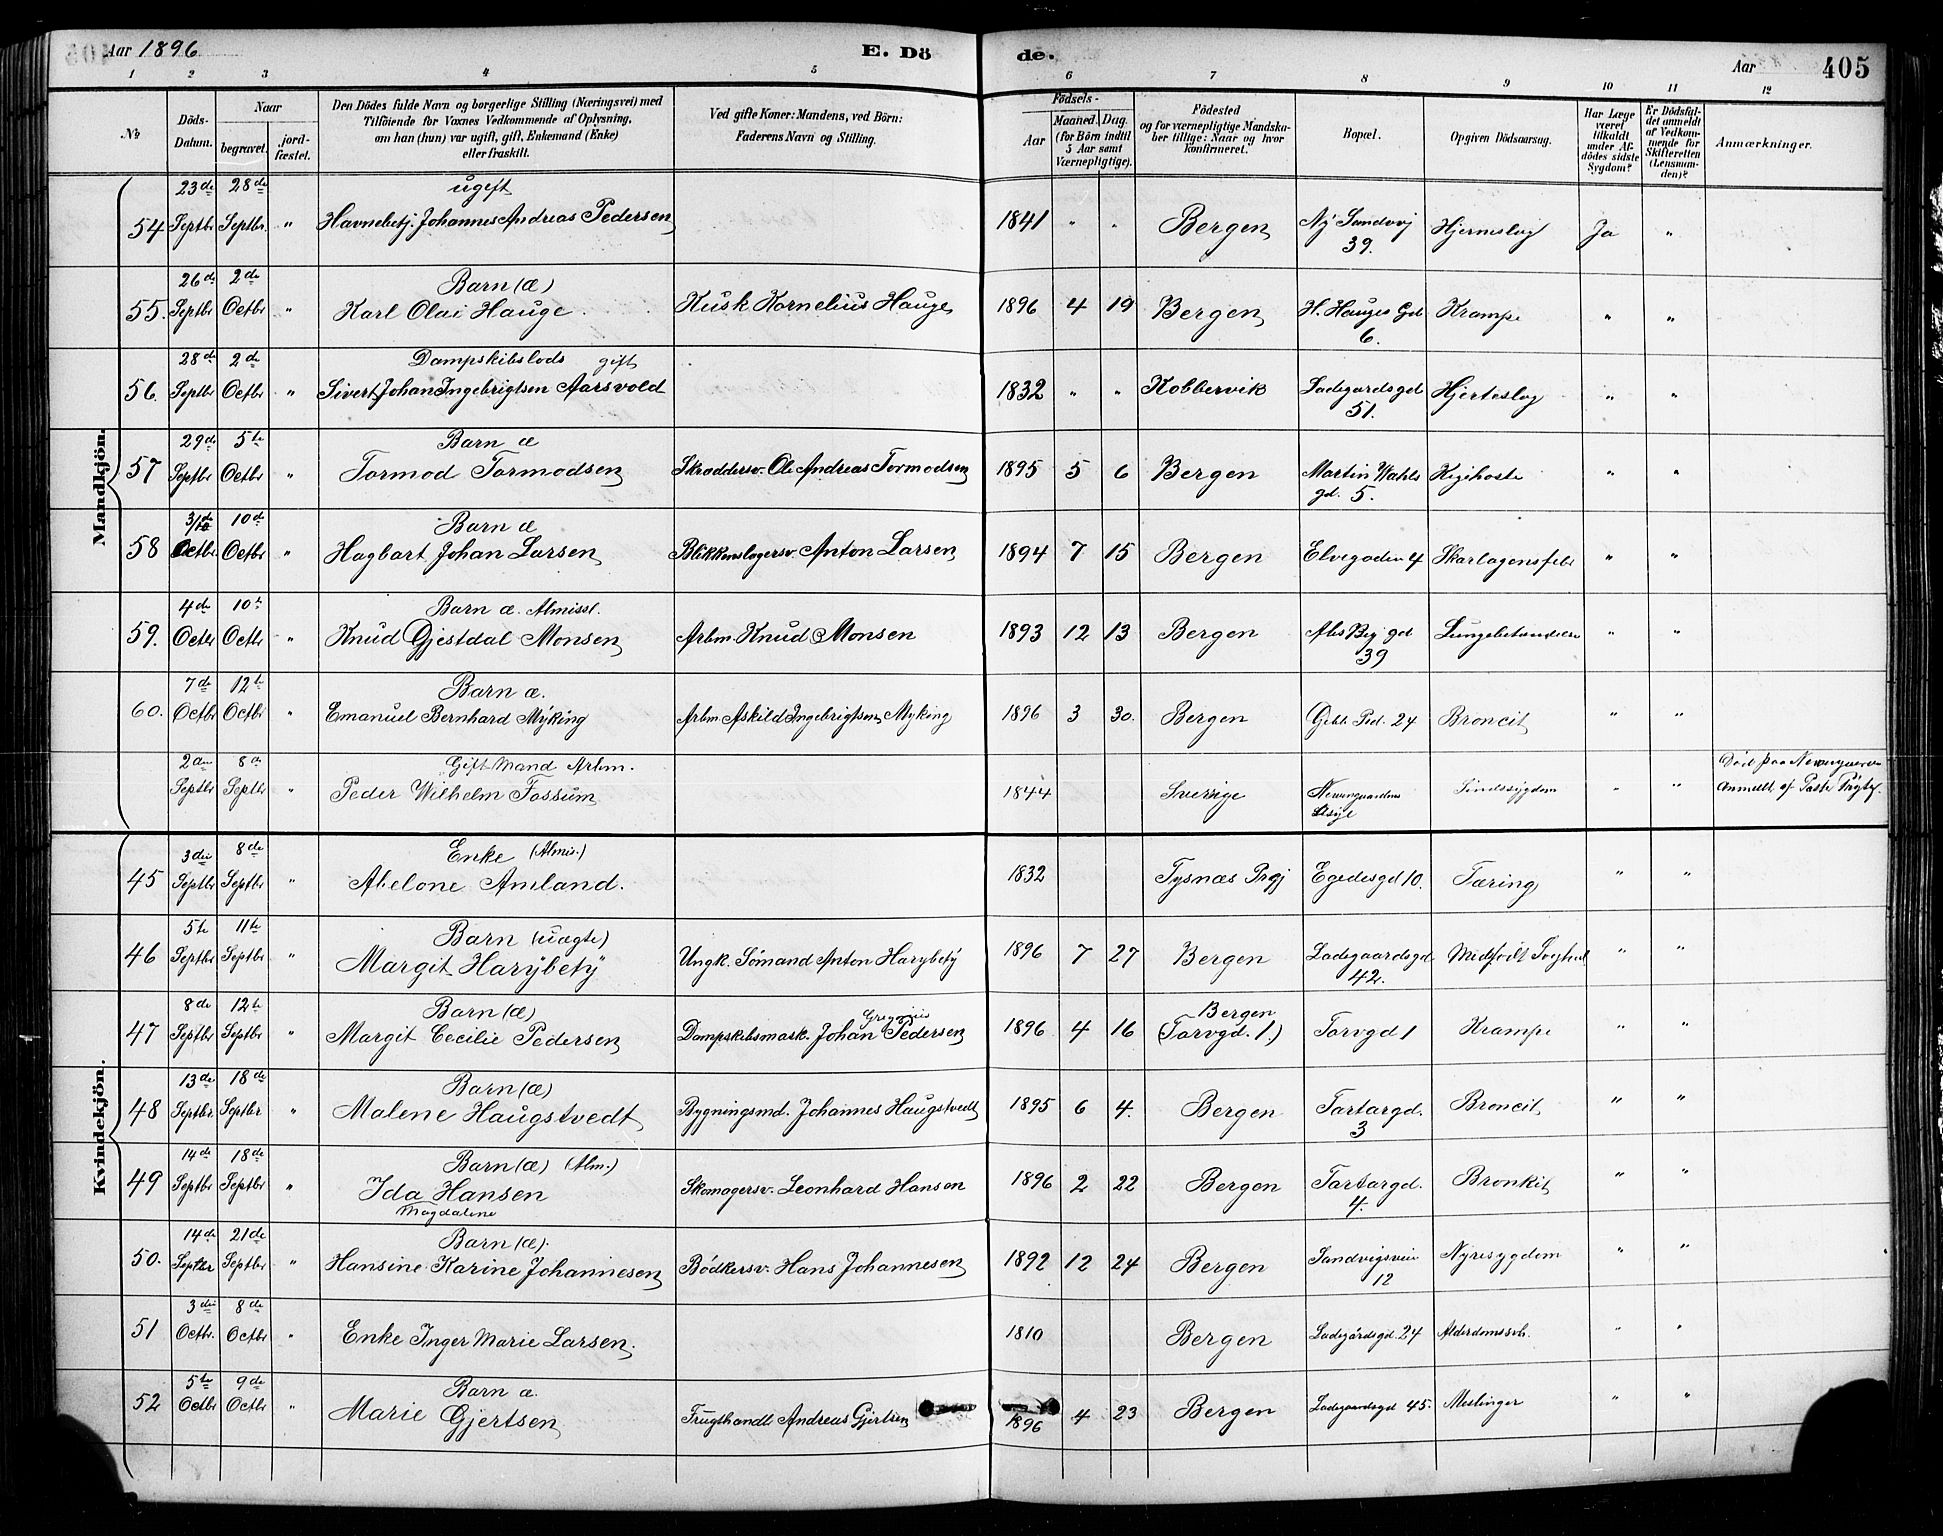 Aar 1896
E. Dö
de.
Aar
405
1 2 3 4 5 6 7 8 9 10 11 12
No
Döds-Datum.
Naar
begravet.
jord-fæstet.
Den Dödes fulde Navn og borgerlige Stilling (Næringsvei) med
Tilföiende for Voxnes Vedkommende af Oplysning,
om han (hun) var ugift, gift, Enkemand (Enke)
eller fraskilt.
Ved gifte Koner: Mandens, ved Börn:
Faderens Navn og Stilling.
Födsels-
Aar
Maaned. Dag.
(for Börn indtil
5 Aar samt
Værnepligtige).
Födested
og for værnepligtige Mandska-
ber tillige: Naar og hvor
konfirmeret.
Bopæl.
Opgiven Dödsaarsag.
Har Læge
været
tilkaldt
under Af-
dödes sidste
Sygdom?
Er Dödsfal-
det anmeldt
af Vedkom-
mende for
Skifteretten
(Lensman-
den)?
Anmærkninger.
Mandkjön.
23de 28de ugift
54 Septbr Septbr. " Havnebetj. Johannes Andreas Pedersen 1841 " " Bergen Ny Sandvig Hjerneslag Ja "
39.
26de 2de Barn (æ)
55. Septbr Octbr " Karl Olai Hauge Kusk Kornelius Hauge 1896 4 19 Bergen H. Hauges Gd Krampe " "
6.
28de 2de Dampskibslods gift
56. Septbr Octbr " Sivert Johan Ingebrigtsen Aarsvold 1832 " " Kobbervik Ladegardsgd Hjerteslag " "
51.
29de 5te Barn æ
57 Septbr Octbr " Tormod Tormodsen Skræddersv. Ole Andreas Tormodsen 1895 5 6 Bergen Martin Wahls Kighoste " "
gd. 5.
3/10 10de Barn æ
58 Octbr. Octbr " Hagbart Johan Larsen Blikkenslagersv. Anton Larsen 1894 7 15 Bergen Elvegaden 4 Skarlagensfeber " "
4de 10de Barn æ. Almissl.
59. Octbr Octbr " Knud Gjestdal Monsen Arbm. Knud Monsen 1893 12 13 Bergen gd Lungebetændelse " "
39
7de 12te Barn æ.
60. Octbr Octbr " Emanuel Bernhard Myking Arbm Askild Ingebrigtsen Myking 1896 3 30. Bergen 24 Broncit " "
2den 8de Gift Mand Arbm.
Septbr Septbr " Peder Wilhelm Fossum 1844 Sverrige Sindssygdom " " Död paa
Asyl Anmeldt af
Kvindekjön.
3die 8de Enke (Almis.)
45 Septbr Septbr " Abelone Amland. 1832 Tysnæs Prgj Egedesgd 10. Tæring " "
5te 11te Barn (uægte)
46 Septbr Septbr " Margit Harybety Ungk. Sömand Anton Harybety 1896 7 27 Bergen Ladegaardsgd Medfödt Svaghed " "
42.
8de 12te Barn (æ) Gregorius Bergen
47 Septbr Septbr " Margit Cecilie Pedersen Dampskibsmask. Johan Pedersen 1896 4 16 (Torvgd. 1.) Torvgd 1 Krampe " "
13de 18de Barn (æ)
48 Septbr. Septbr. " Malene Haugstvedt Bygningsmd. Johannes Haugstvedt 1895 6 4. Bergen Tartargd. Broncit " "
3
14de 18de Barn (æ) (Alm.)
49 Septbr Septbr " Ida Hansen Skomagersv. Leonhard Hansen 1896 2 22 Bergen Tartargd. Bronkit " "
Magdalene 4.
14de 21de Barn (æ).
50. Septbr Septbr " Hansine Karine Johannesen Bödkersv. Hans Johannesen 1892 12 24 Bergen Sandvigsveien Nyresygdom " "
12
3die 8de
51 Octbr. Octbr " Enke Inger Marie Larsen. 1810 Bergen Ladegårdsgd. 24 Alderdomssvh. " "
5te 9de Barn æ.
52 Octbr Octbr " Marie Gjertsen Frugthandl Andreas Gjertsen 1896 4 23 Bergen Ladegaardsgd 45. Meslinger " "